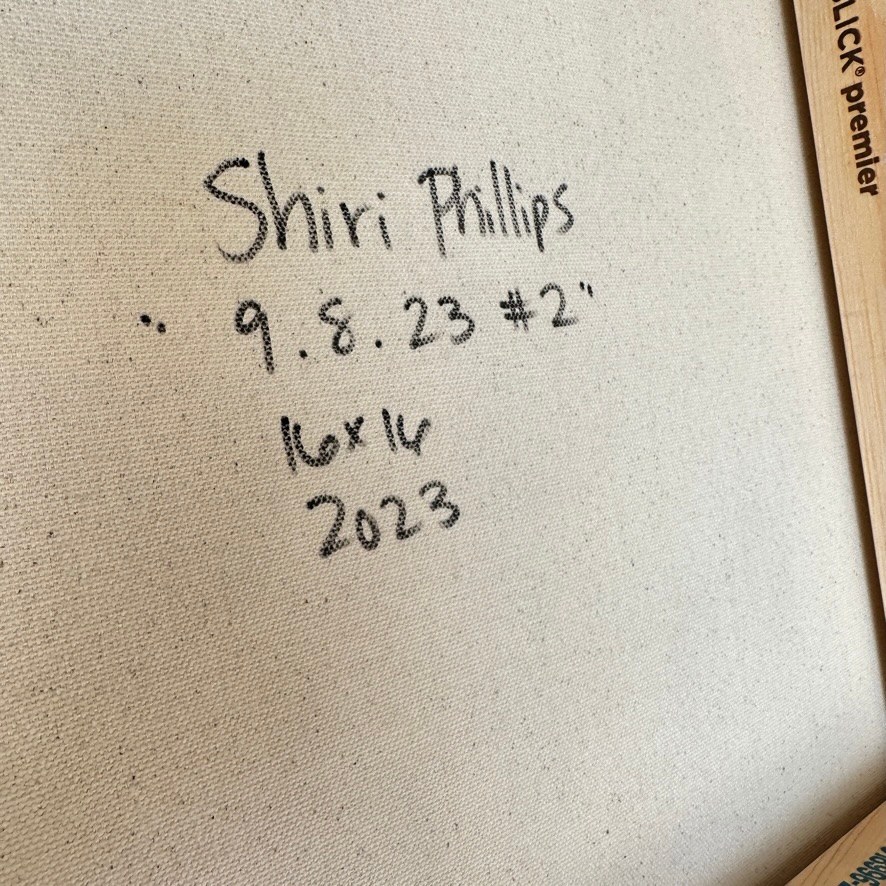 Shiri Phillips
"9.8.23 #2"
16x16
2023
LICK® premier